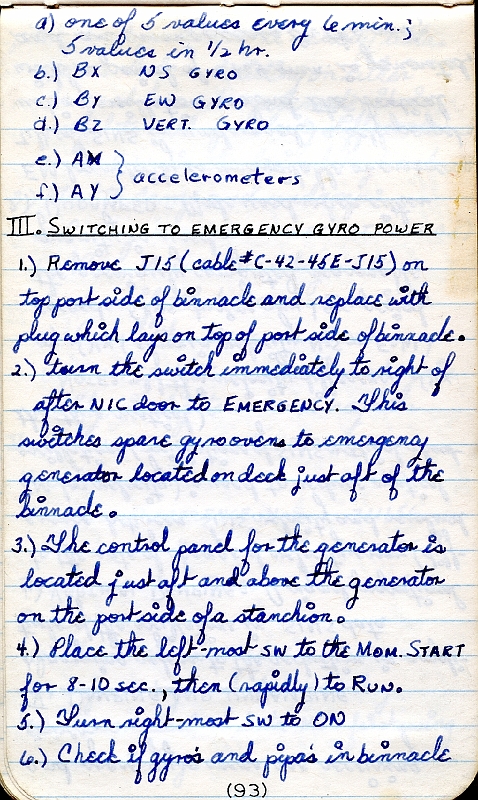 a) one of 5 values every 6 min.;
5 values in 1/2 hr.
b.) Bx NS GYRO
c.) By EW GYRO
d.) Bz VERT. GYRO
e.) AX
f.) AY } accelerometers
III. SWITCHING TO EMERGENCY GYRO POWER
1.) Remove J15 (cable #C-42-45E-J15) on
top port side of binnacle and replace with
plug which lays on top of port side of binnacle.
2.) turn the switch immediately to right of
after NIC door to EMERGENCY. This
switches spare gyro ovens to emergency
generator located on deck just aft of the
binnacle.
3.) The control panel for the generator is
located just aft and above the generator
on the port side of a stanchion.
4.) Place the left-most SW to the MOM. START
for 8-10 sec., then (rapidly) to RUN.
5.) Turn right-most SW to ON
6.) Check if gyros and pipa's in binnacle
(93)